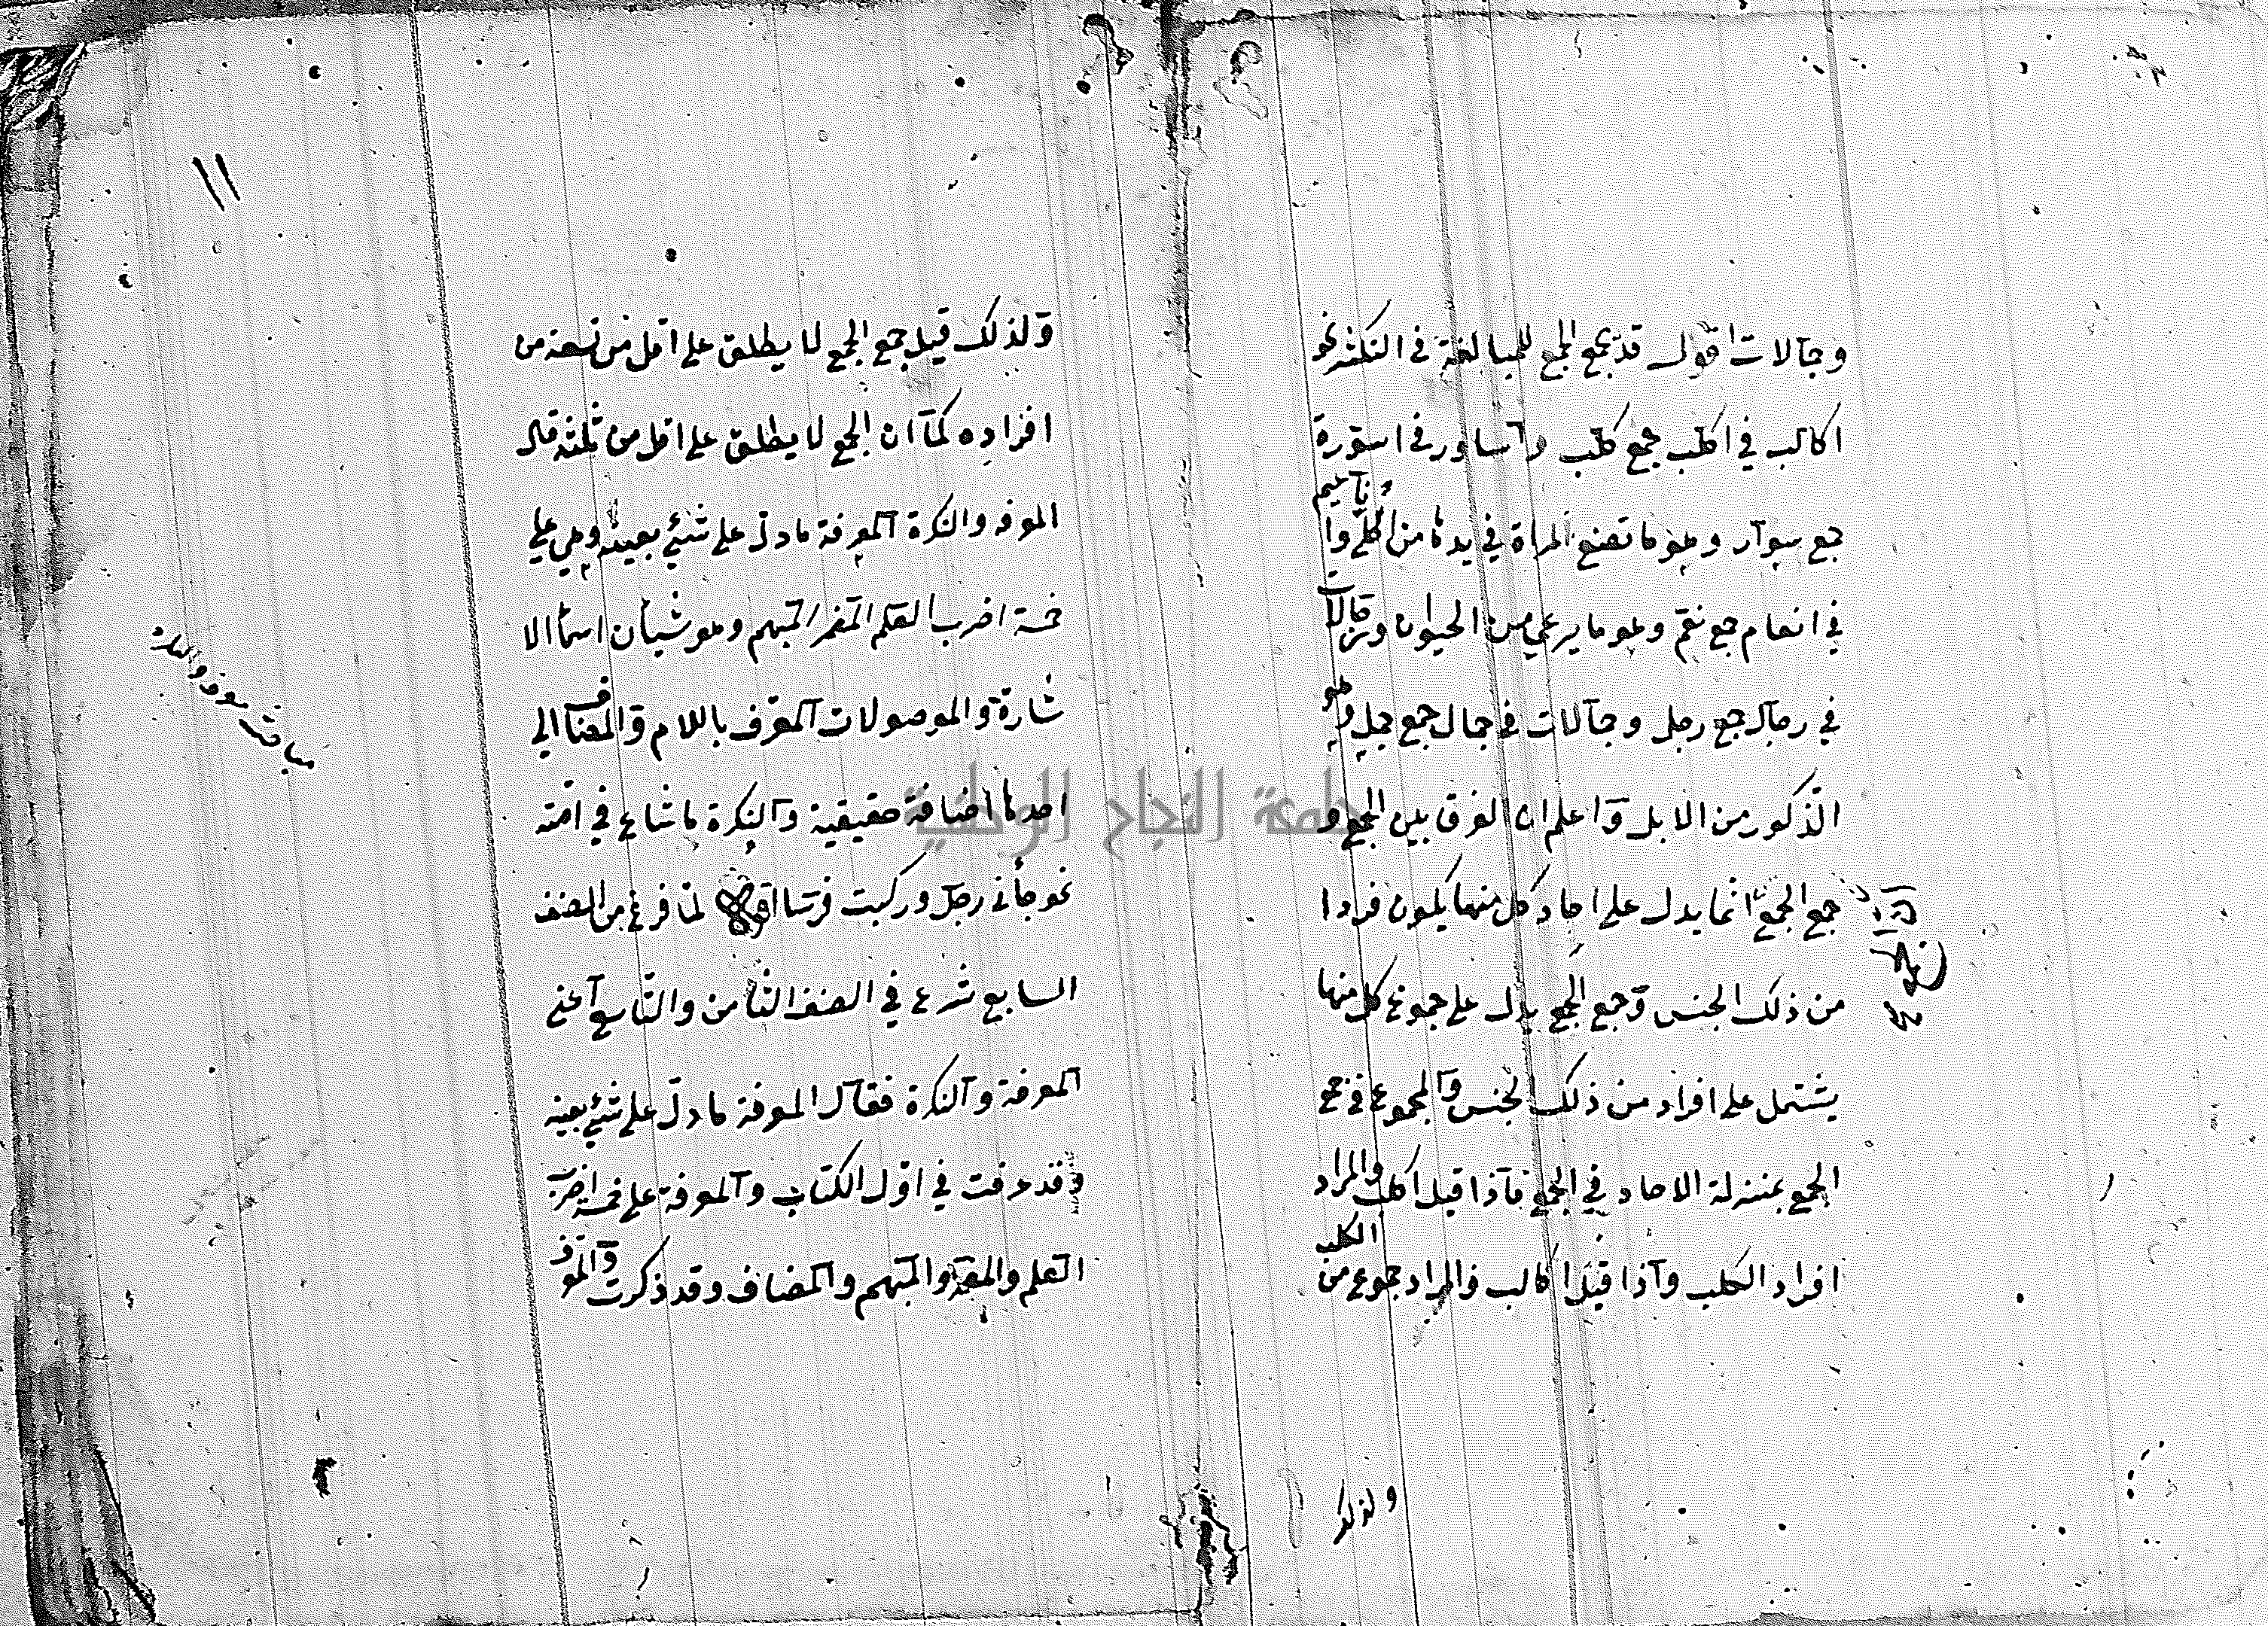 وجمالات اقول قد يجمع الجمع للمبالغة في التكثير نحو
اكالب في اكلب جمع كلب واساور في اسورة
جمع سوار وهو ما تضع المراة في يدها من الحلي وانا عيم
في انعام جمع نعم وهو ما يرعى من الحيوان ورجالات
في رجال جمع رجل وجمالات في جمال جمع جمل وهو
الذكور من الابل واعلم ان الفرق بين الجمع و
جمع الجمع انما يدل على احاد كل منها يكون فردا
من ذلك الجنس وجمع الجمع يدل على جموع كل منها
يشتمل على افراد من ذلك الجنس والمجموع في جمع
الجمع بمنزلة الاحاد في الجمع فاذا قيل اكلب فالمراد
افراد الكلب واذا قيل اكالب فالمراد جموع من الكلب
ولذلك
١١
ولذلك قيل جمع الجمع لا يطلق على اقل من تسعة من
افراده كما ان الجمع لا يطلق على اقل من ثلثة قال
المعرفة والنكرة المعرفة ما دل على شيئ بعينه وهي على
خمسة اضرب العلم المضمر المبهم وهو شيأن اسما الا
شارة والموصولات المعرف باللام والمضاف الى
احدها اضافة حقيقية والنكرة ما شاع في امته
نحو جأني رجل وركبت فرسا اقول لما فرغ من الصنف
السابع شرع في الصنف الثامن والتاسع اعني
المعرفة والنكرة فقال المعرفة ما دل على شيئ بعينه
وقد عرفت في اول الكتاب والمعرفة على خمسة اضرب
العلم والمضمر والمبهم والمضاف وقد ذكرت والمعرف
مباحث معرفة والنكرة
جامعة النجاح الوطنية